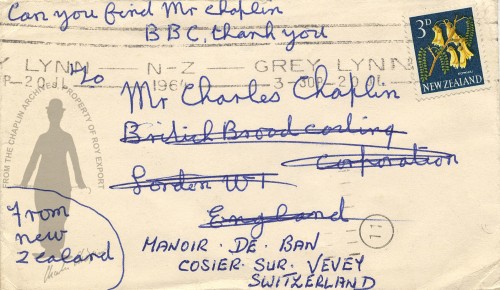 Can you find Mr Chaplin
BBC. thank you
Y LYNN N-Z GREY LYNN
P-20 196 3-30P 20
3D
KOWHAI
NEW ZEALAND
To
Mr Charles Chaplin
British Broadcasting
Corporation
London W1
England
MANOIR. DE. BAN
COSIER. SUR. VEVEY
SWITZERLAND
11
From
new
Zealand
FROM THE CHAPLIN ARCHIVES, PROPERTY OF ROY EXPORT